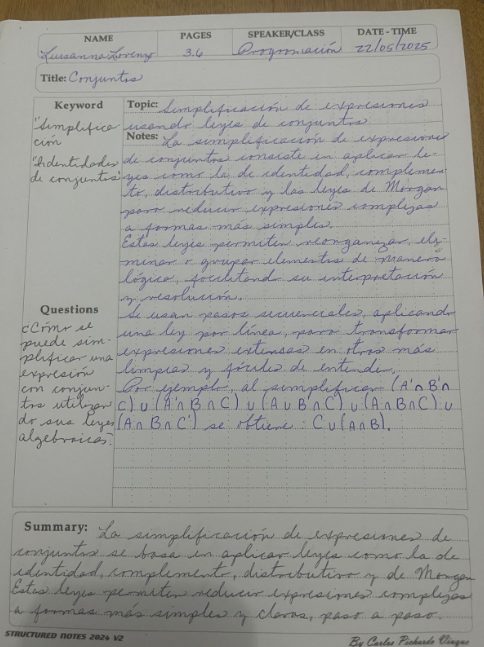 NAME PAGES SPEAKER/CLASS DATE - TIME
Luisanna Lorenz 3.6 Programación 22/05/2025
Title: Conjuntos
Keyword
"Simplifica-
ción
"Identidades
de conjuntos"
Questions
¿Cómo se
puede sim-
plificar una
expresión
con conjun-
tos utilizan
do sus leyes
algebraicas?
Topic: Simplificación de expresiones
usando leyes de conjuntos
Notes: La simplificación de expresiones
de conjuntos consiste en aplicar le-
yes como la de identidad, complemen-
to, distributivo y las leyes de Morgan
para reducir expresiones complejas
a formas más simples.
Estas leyes permiten reorganizar, eli-
minar o agrupar elementos de manera
lógica, facilitando su interpretación
y resolución.
Se usan pasos secuenciales, aplicando
una ley por línea, para transformar
expresiones extensas en otras más
limpias y fáciles de entender.
Por ejemplo, al simplificar (A'∩B'∩
C)∪(A'∩B∩C)∪(A∪B∩C')∪(A∩B∩C)∪
(A∩B∩C') se obtiene: C∪(A∩B).
Summary: La simplificación de expresiones de
conjuntos se basa en aplicar leyes como la de
identidad, complemento, distributivo y de Morgan
Estas leyes permiten reducir expresiones complejas
a formas más simples y claras, paso a paso.
STRUCTURED NOTES 2024 V2 By Carlos Pichardo Vinque